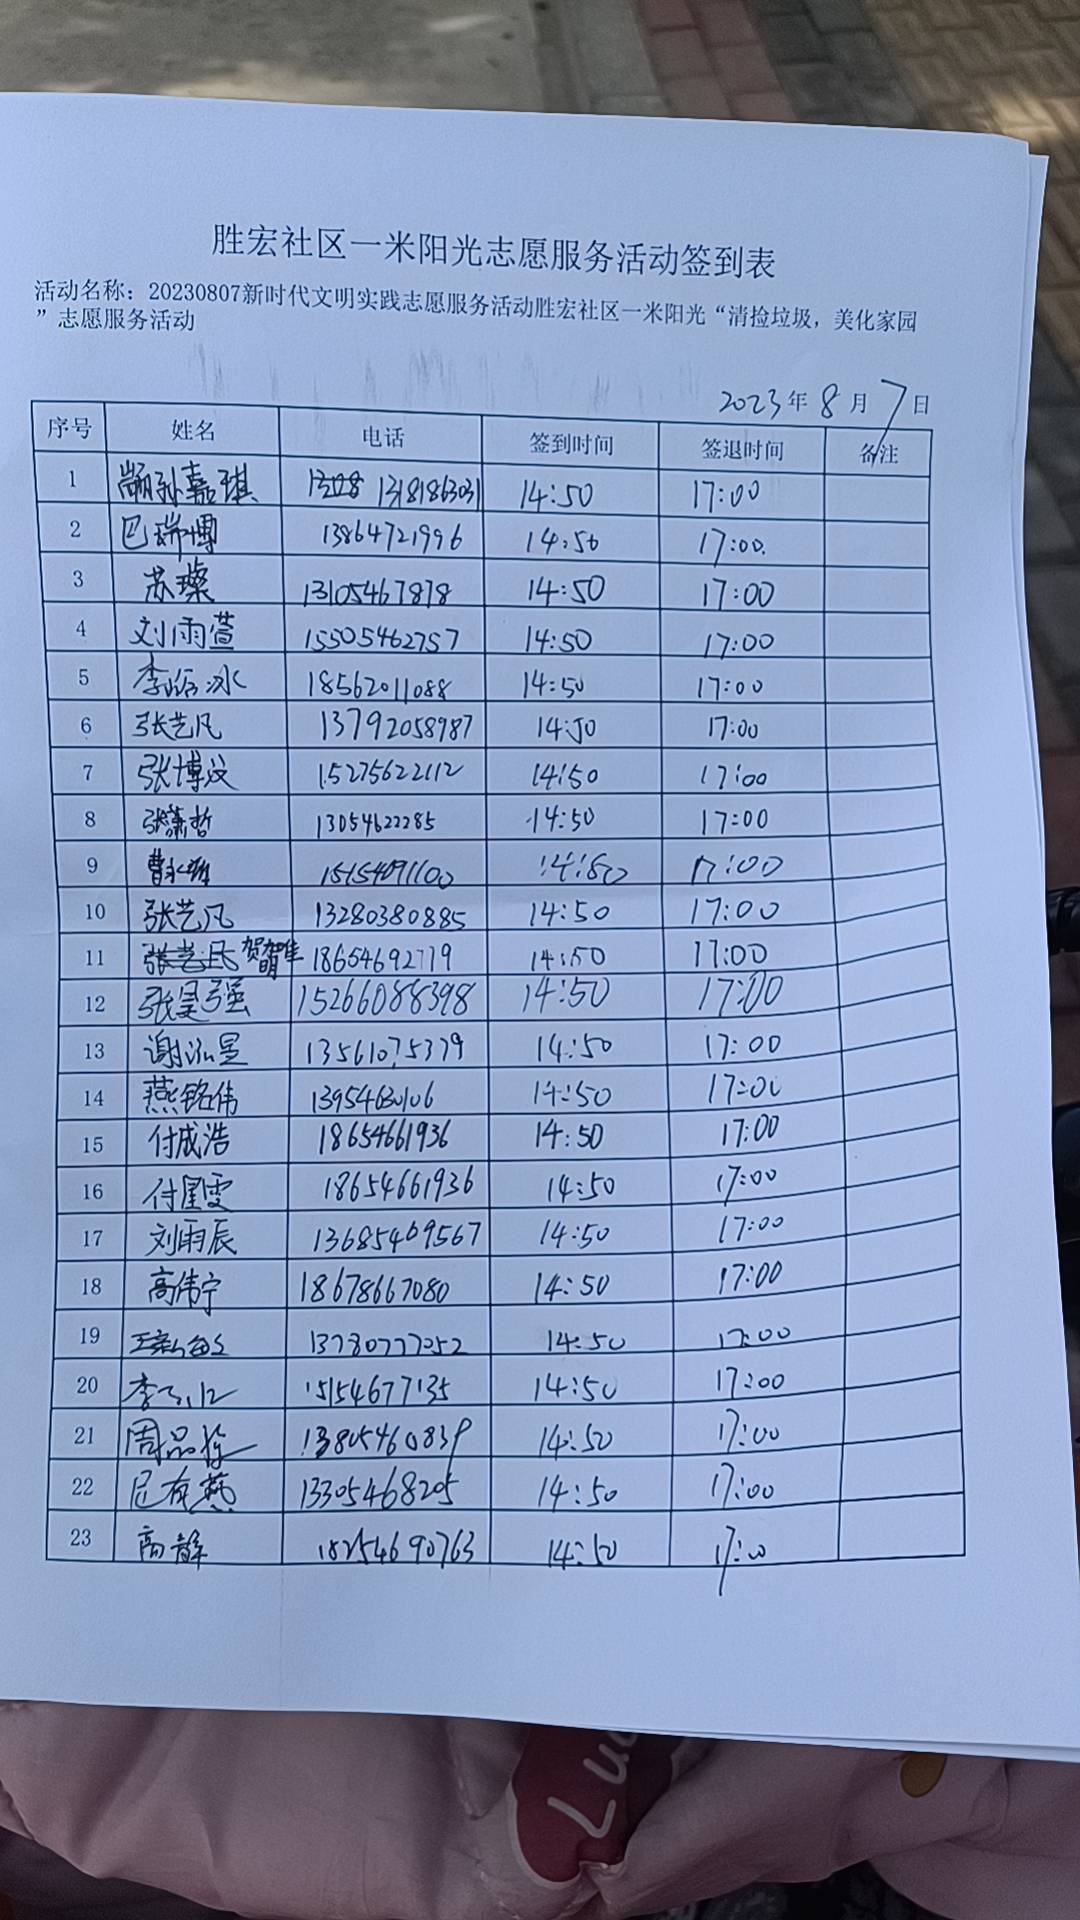 胜宏社区一米阳光志愿服务活动签到表
活动名称：20230807新时代文明实践志愿服务活动胜宏社区一米阳光“清捡垃圾，美化家园
”志愿服务活动
2023年 8 月 7 日
序号 姓名 电话 签到时间 签退时间 备注
1 颛孙嘉琪 13181863031 14:50 17:00
2 巴瑞博 13864721996 14:50 17:00
3 苏璨 13105467878 14:50 17:00
4 刘雨萱 15505462757 14:50 17:00
5 李 冰 18562011088 14:50 17:00
6 张艺凡 13792058987 14:50 17:00
7 张博汶 15275622112 14:50 17:00
8 张萧哲 13054622285 14:50 17:00
9 曹 15154091100 14:50 17:00
10 张艺凡 13280380885 14:50 17:00
11 贺 18654692779 14:50 17:00
12 张昊强 15266088398 14:50 17:00
13 谢泓昱 13561075379 14:50 17:00
14 燕铭伟 13954630106 14:50 17:00
15 付成浩 18654661936 14:50 17:00
16 付星雯 18654661936 14:50 17:00
17 刘雨辰 13685469567 14:50 17:00
18 高伟宁 18678667080 14:50 17:00
19 13780777052 14:50 17:00
20 李 15154677135 14:50 17:00
21 周品 13805460839 14:50 17:00
22 燕 13305468205 14:50 17:00
23 高静 18254690763 14:50 17:00
on7